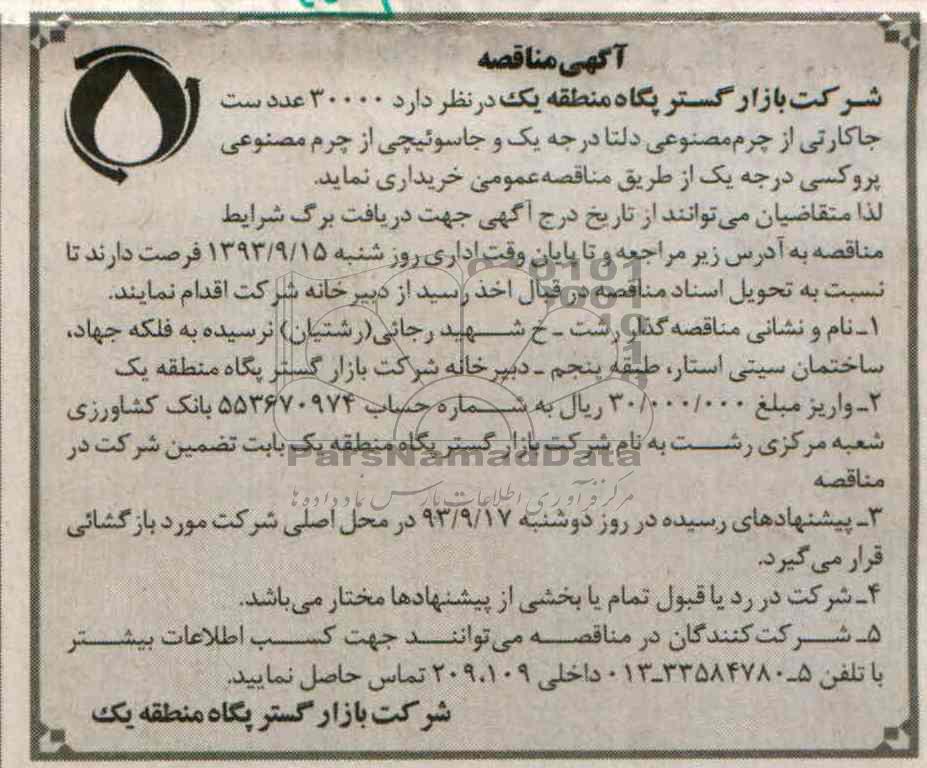 آگهی مناقصه
شرکت بازار گستر پگاه منطقه یک در نظر دارد ۳۰۰۰۰ عدد ست
جاکارتی از چرم مصنوعی دلتا درجه یک و جاسوئیچی از چرم مصنوعی
پروکسی درجه یک از طریق مناقصه عمومی خریداری نماید.
لذا متقاضیان می‌توانند از تاریخ درج آگهی جهت دریافت برگ شرایط
مناقصه به آدرس زیر مراجعه و تا پایان وقت اداری روز شنبه ۱۳۹۳/۹/۱۵ فرصت دارند تا
نسبت به تحویل اسناد مناقصه در قبال اخذ رسید از دبیرخانه شرکت اقدام نمایند.
۱ـ نام و نشانی مناقصه گذار رشت ـ خ شهید رجائی (رشتیان) نرسیده به فلکه جهاد،
ساختمان سیتی استار، طبقه پنجم ـ دبیرخانه شرکت بازار گستر پگاه منطقه یک
۲ـ واریز مبلغ ۳۰/۰۰۰/۰۰۰ ریال به شماره حساب ۵۵۳۶۷۰۹۷۴ بانک کشاورزی
شعبه مرکزی رشت به نام شرکت بازار گستر پگاه منطقه یک بابت تضمین شرکت در
مناقصه
۳ـ پیشنهادهای رسیده در روز دوشنبه ۹۳/۹/۱۷ در محل اصلی شرکت مورد بازگشائی
قرار می گیرد.
۴ـ شرکت در رد یا قبول تمام یا بخشی از پیشنهادها مختار می‌باشد.
۵ـ شرکت کنندگان در مناقصه می‌توانند جهت کسب اطلاعات بیشتر
با تلفن ۵ـ۳۳۵۸۴۷۸۰ـ۰۱۳ داخلی ۲۰۹،۱۰۹ تماس حاصل نمایید.
شرکت بازار گستر پگاه منطقه یک
ParsNamadData
مرکز فرآوری اطلاعات پارس نماد داده ها